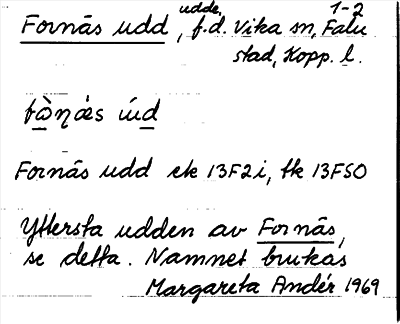 Fornäs udd, udde, f.d. Vika sn, Falu 1-2
stad, Kopp. l.
Fornäs udd ek 13F2i, tk 13FSO
Yttersta udden av Fornäs,
se detta. Namnet brukas
Margareta Andér 1969